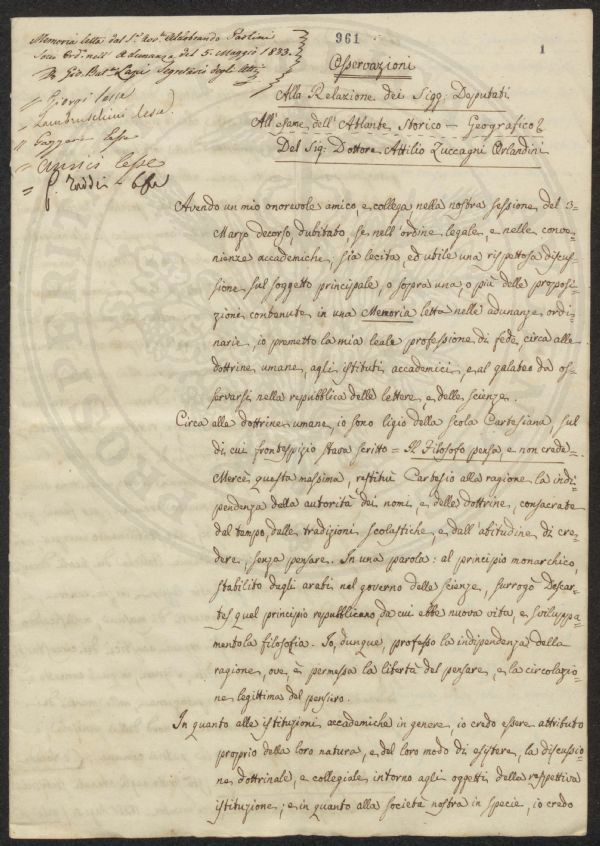 361
1
Memoria letta dal S.r Aldobrando Paolini
Socio Ord.o nell' Adunanza del 5. Maggio 1833.
D.r Gio. Bat.a Lapi Segretario degli Atti
= Giorgi lesse
= Lambruschini lesse
= Gazzeri lesse
= lesse
= Taddei lesse
Osservazioni
Alla Relazione dei Sigg. Deputati
All'esame dell'Atlante Storico = Geografico &
Del Sig: Dottore Attilio Zuccagni Orlandini
Avendo un mio onorevole amico, e collega, nella nostra sessione del 3=
Marzo decorso, dubitato, se nell'ordine legale, e nelle conve=
nienze accademiche, sia lecita, ed utile una rispettosa discus=
sione sul soggetto principale, o sopra una, o più delle proposi=
zioni contenute in una Memoria letta nelle adunanze ordi=
narie, io premetto la mia leale professione di fede, circa alle
dottrine umane, agli istituti accademici, e al galateo da os=
servarsi nella repubblica delle lettere, e delle scienze.
Circa alle dottrine umane, io sono ligio della scola Cartesiana, sul
di cui frontespizio stava scritto = Il Filosofo pensa, e non crede=
Mercè questa massima, restituì Cartesio alla ragione la indi=
pendenza della autorità dei nomi, e delle dottrine, consacrate
dal tempo, dalle tradizioni scolastiche, e dall'abitudine di cre=
dere, senza pensare. In una parola: al principio monarchico,
stabilito dagli arabi nel governo delle scienze, surrogò Descar=
tes quel principio repubblicano da cui ebbe nuova vita, e sviluppa=
mento la filosofia. Io, dunque, professo la indipendenza della
ragione, ove, è permessa la libertà del pensare, e la circolazio=
ne legittima del pensiero.
In quanto alle istituzioni accademiche in genere, io credo essere attributo
proprio della loro natura, e del loro modo di esistere, la discussio=
ne dottrinale, e collegiale intorno agli oggetti della respettiva
istituzione; e in quanto alla Società nostra in specie, io credo